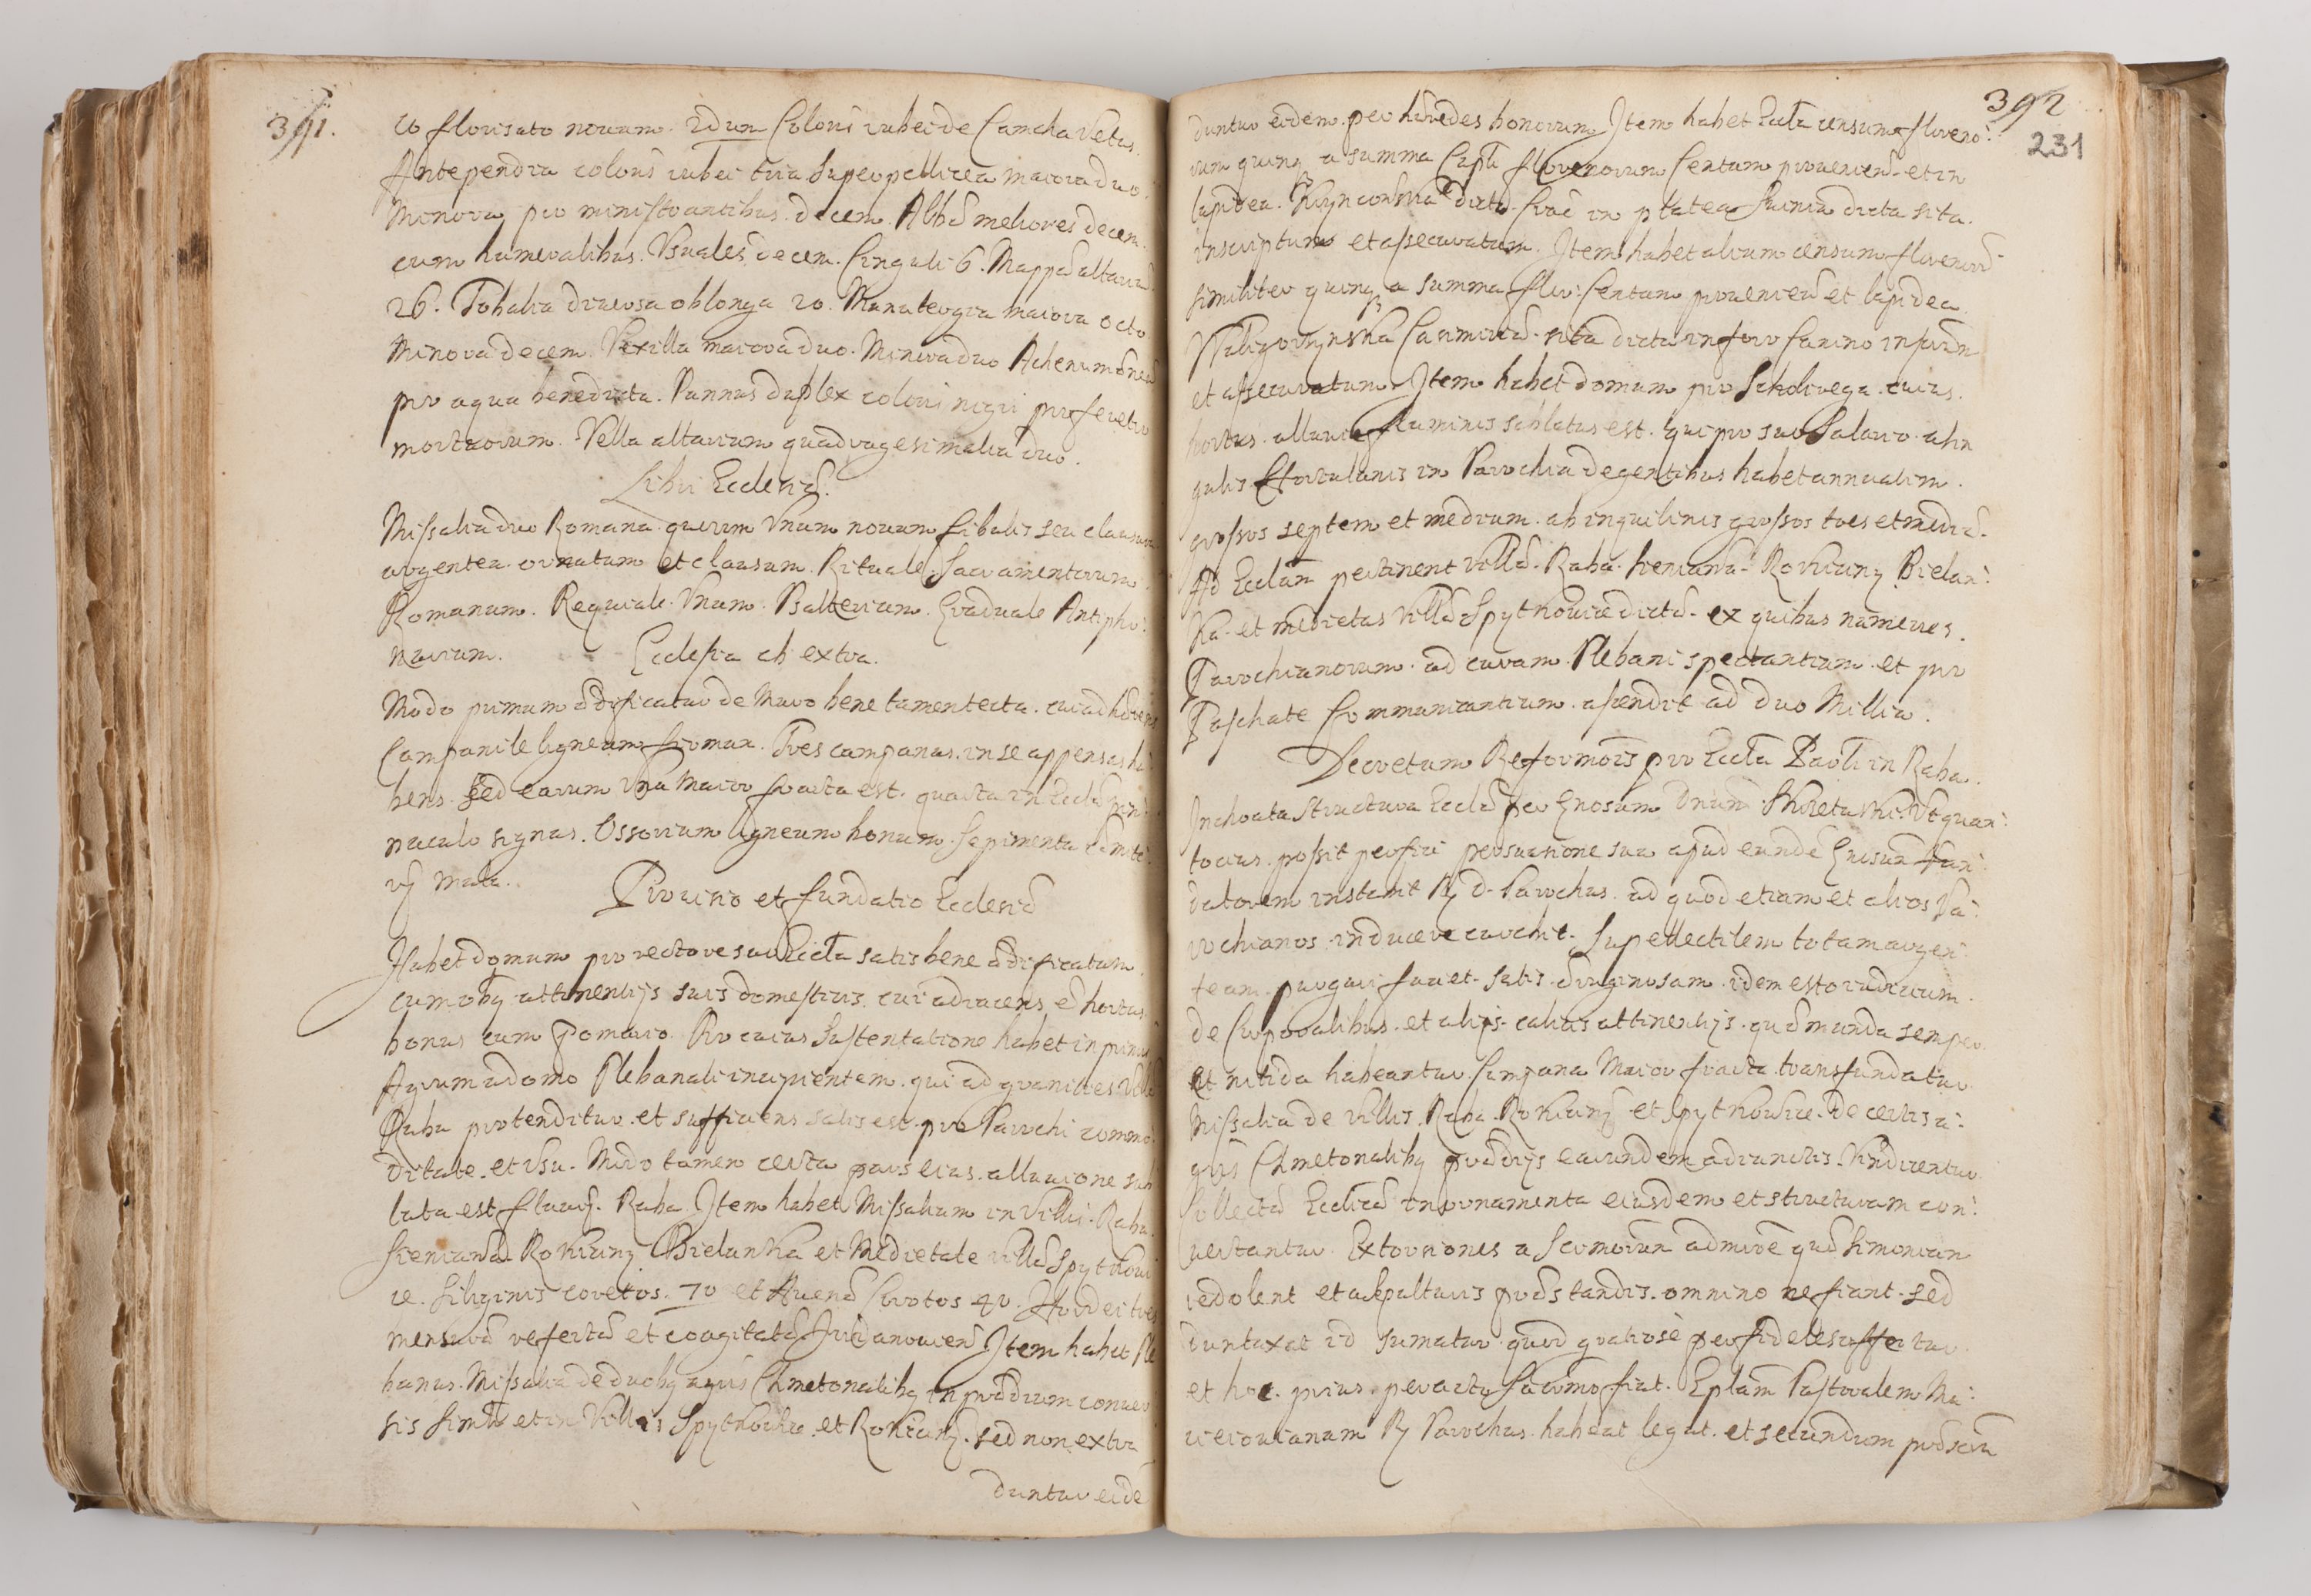 391.
co florisato novum. idun Coloris rubei de Camcha Vetus.
Antependia coloris rubei tria Superpellicea maiora duo.
Minora pro ministrantibus decem. Albæ meliores decem.
cum humeralibus. Usuales decem. Cinguli 6. Mappæ altarium
26. Tobalia diversa oblonga 20. Manutergia maiora octo
Minora decem. Vexilla maiora duo. Minora duo Ahenum æneum
pro aqua benedicta. Pannus duplex coloris nigri pro feretro
mortuorum. Vella altarium quadragesimalia duo.
Libri Ecclesiæ.
Missalia duo Romana quorum Unum novum fibulis seu clausura
argentea ornatum et clausum. Rituale Sacramentorum
Romanum. Requiale Unum. Psalterium. Graduale Antipho:
narium. Ecclesia ab extra.
Modo primum ædificatur de Muro bene tamen tecta. cui adhærens
Campanile ligneum firmum. Tres campanas in se appensas ha:
bens. Sed earum Una Maior fracta est. quarta in Eccla pin:
naculo signas. Ossorium ligneum bonum. Sepimenta Cæmite:
rij mala. Provisio et fundatio Ecclesiæ
Habet domum pro rectore suo Eccla satis bene ædificatam.
cum oïbq attinentijs suis domesticis. cui adiacens è hortus
bonus cum pomario. Pro cuius Sustentatione habet inprimis
Agrum a domo Plebanali incipientem. qui ad granicies Villæ
Raba protenditur et sufficiens satis est pro Parochi commo:
ditate et usu. Modo tamen certa pars eius alluvione sub
lata est fluvij Raba Item habet Missalium in Villis Raba
Sieniawa Rokiciny Bielanka et Medietate villæ Spytkowi
ce. Siliginis coretos. 70 et Avenæ Coretos 40. Hordei tres
mensuræ refertæ et coagitatæ Item habet Ple
banus. Missalia de duobq agris Chmetonalibq in prædium conver
sis simul et in Villis Spytkowice et Rokiciny. sed non extra
duntur eidē
392
231
duntur eidem per hæredes bonorum Item habet Eccla censum floreno:
rum quinq a summa Capli florenorum Centum provenien. et in
lapidea. dicta Crac in platea dicta sita.
inscriptum et assecuratum. Item habet alium censum florenorū
similiter quinq a summa flor: Centum provenien et lapidea
Casimiriæ sita dicta in foro Canino inscriptū
et assecuratum Item habet domum pro Scholirega cuius.
hortus alluvie fluminis sublatus est. qui pro suo Salario a sin
gulis Hortulanis in Parochia degentibus habet annuatim.
grossos septem et medium. ab inquilinis grossos tres et mediū.
Ad Ecclam pertinent Villæ. Raba Sieniawa Rokiciny Bielan:
ka. et medietas Villæ Spytkowice dictæ. ex quibus numerus.
Parochianorum ad curam Plebani spectantium et pro
Paschate Communicantium ascendit ad duo Millia.
Decretum Reformōis pro Eccla Paoli in Raba.
Inchoata Structura Ecclæ per Gnosum Dnum Ut quan:
tocius possit perfici persuasione sua apud eundē Gnosum fun:
datorem instant Rq d. Parochus. ad quod etiam et alios Pa:
rochianos inducere curabit. Supellectilem totam argen:
team purgari faciet. satis æruginosam. idem esto iudicium
de Corporalibus. et alijs calicis attinentijs. quæ munda semper
et nitida habeantur. Campana Maior fracta transfundatur
Missalia de Villis Raba Rokiciny et Spytkowice. de certis a:
gris Chmetonalibq prædijs earundem adiunctis. Vindicentur
Collectæ Eccliæ in ornamenta eiusdem et structuram con:
vertantur. Extorsiones a Scrmorum admīne quæ simoniam
redolent et a sepulturis prædstandis. omnino ne fiant. sed
duntaxat id sumatur quod gratiose per fideles offertur
et hoc. prius peracto Sacrmo fiat. Eplam Pastoralem Ma:
cieiovianam Rq Parochus habeat legat. et secundum prædscrīn